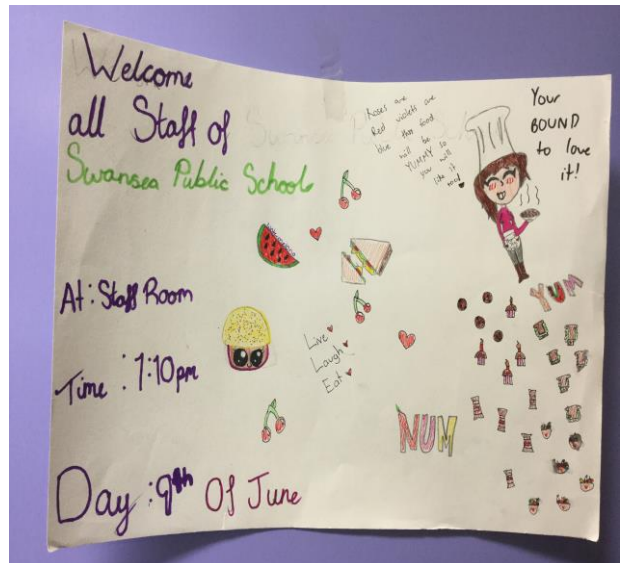 Welcome
all Staff of
Swansea Public School
At: Staff Room
Time: 1:10pm
Day: 9th Of June
Roses are
Red violets are
blue this food
will be
YUMMY so
you will
like it
too!
Your
BOUND
to love
it!
YUM
Live
Laugh
Eat
NUM